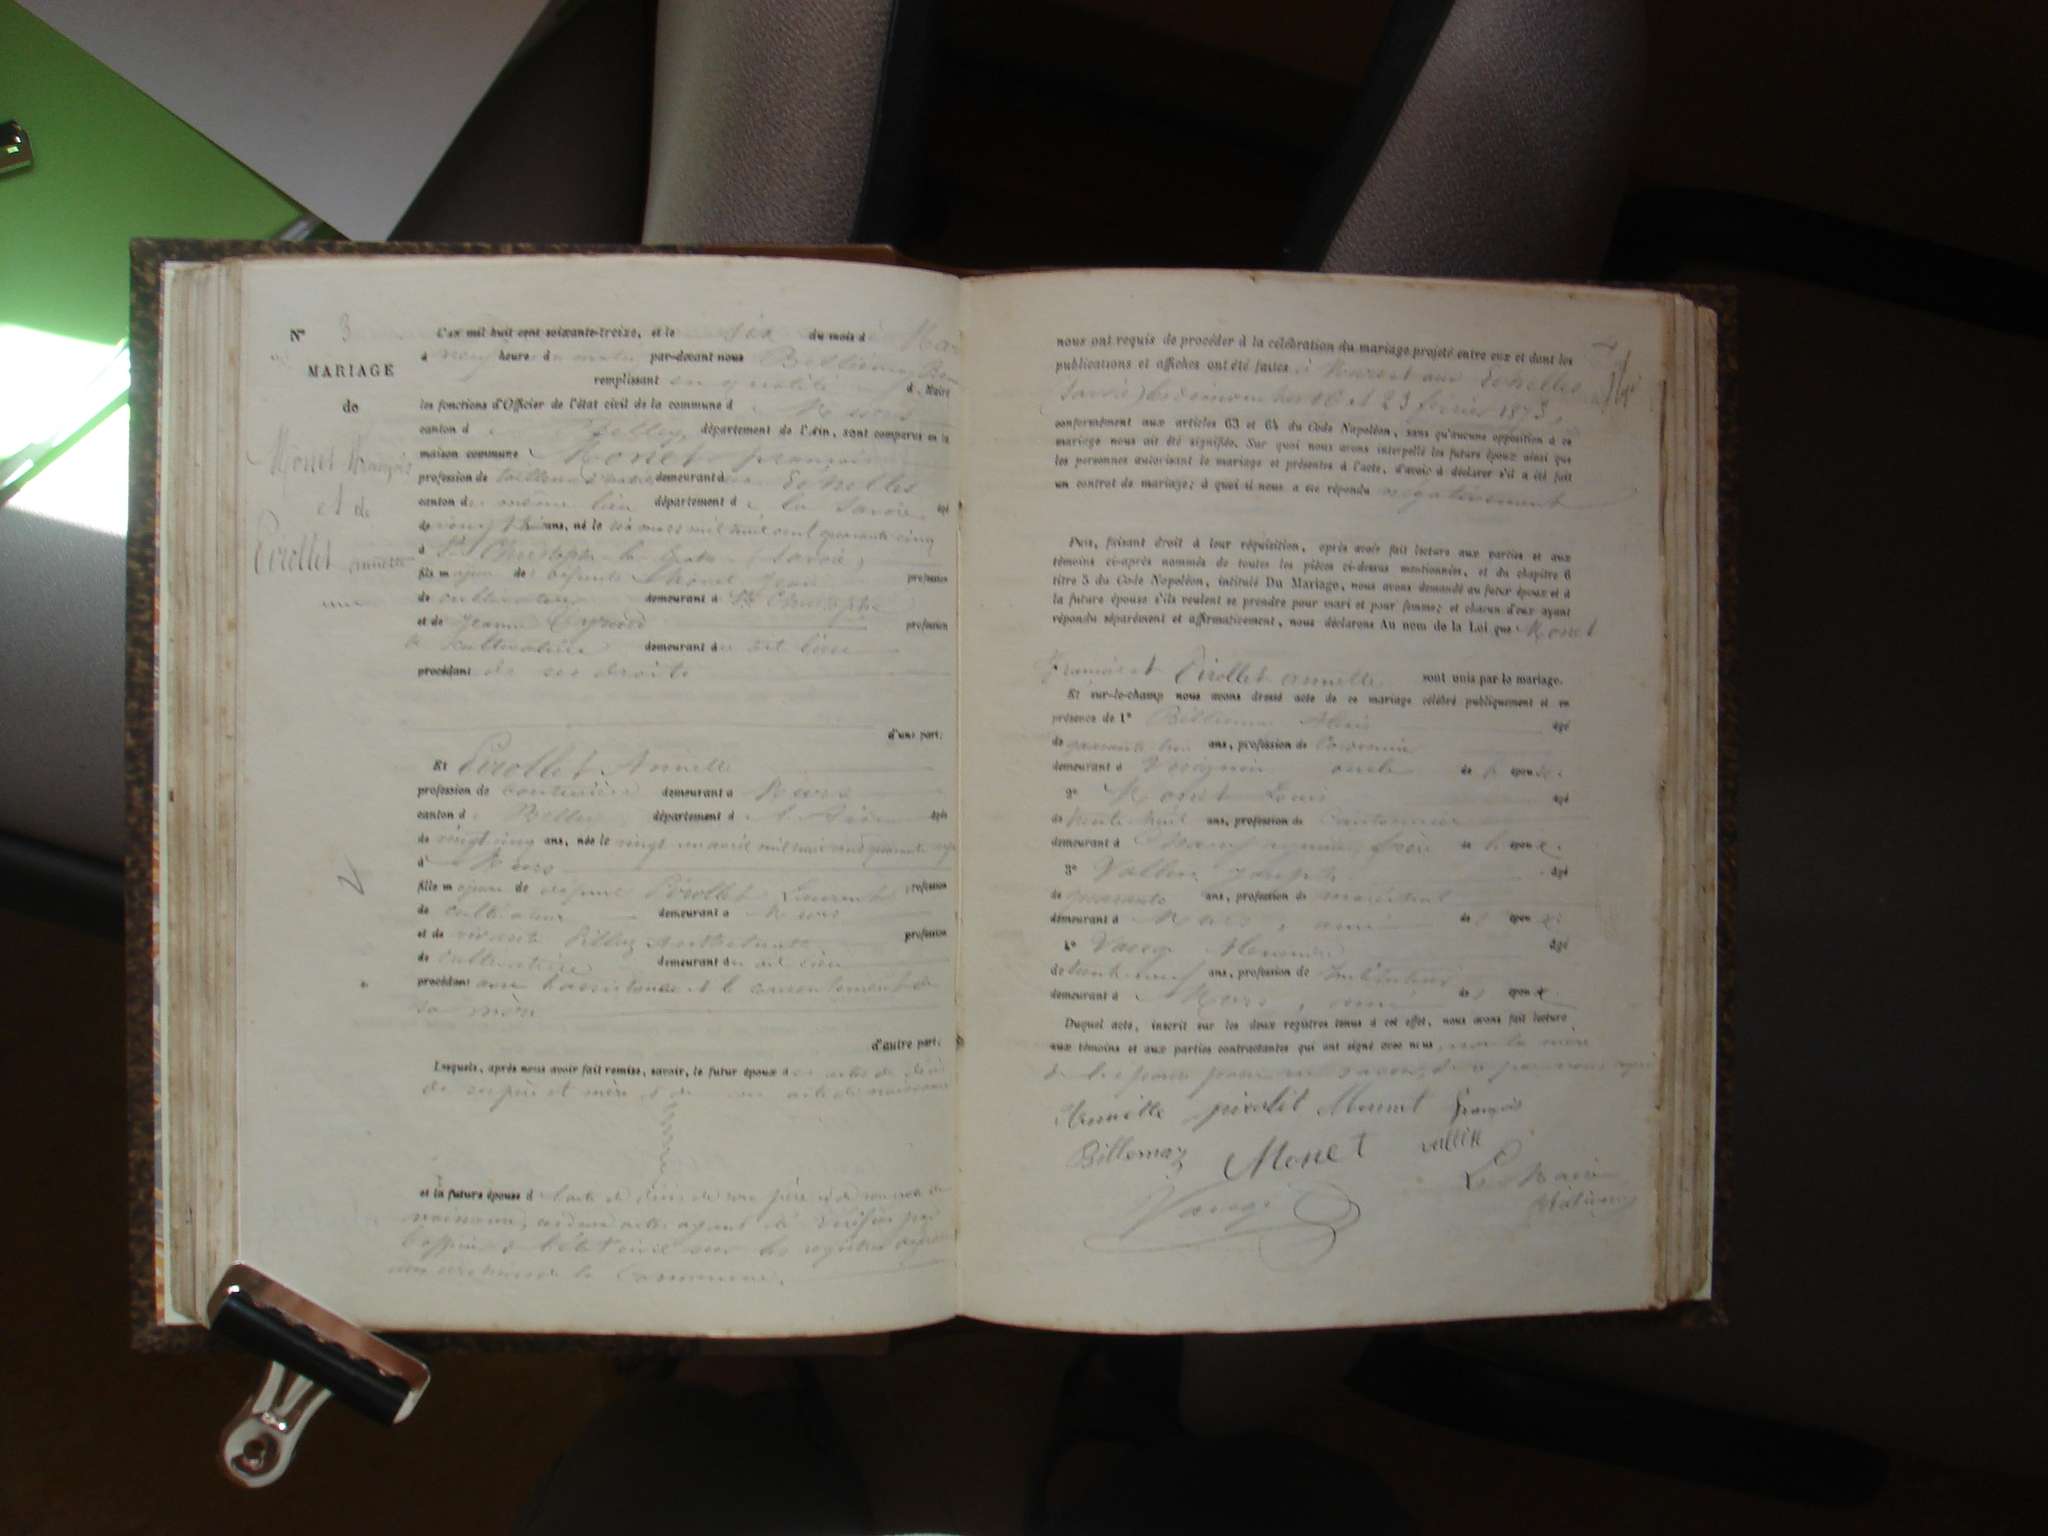 N° 3
MARIAGE
de
Monet François
et de
Pirollet annette
L'an mil huit cent soixante-treize, et le six du mois d Mar
à neuf heure du matin par-devant nous
remplissant en qualité d Maire
les fonctions d'Officier de l'état civil de la commune d
canton d Belley, département de l'Ain, sont comparus en la
maison commune Monet françois
profession de tailleur demeurant aux Echelles
canton du même lieu département de la Savoie âgé
de vingt huit ans, né le six mars mil huit cent quarante cinq
à St Christophe la Grotte (Savoie)
fils majeur de défunts Monet Jean profession
de cultivateur demeurant à St Christophe
et de Jeanne profession
de cultivatrice demeurant au dit lieu
procédant de ses droits
d'une part;
Et Pirollet Annette
profession de couturière demeurant à
canton d Belley département d l'Ain âgée
de vingt cinq ans, née le vingt un avril mil huit cent quarante sept
à
fille majeure de défunt Pirollet Laurent profession
de cultivateur demeurant à
et de vivante profession
de cultivatrice demeurant au dit lieu
procédant avec l'assistance et le consentement de
sa mère
d'autre part;
Lesquels, après nous avoir fait remise, savoir, le futur époux des actes de décès
de ses père et mère et de son acte de naissance
et la future épouse d l'acte de décès de son père et de son acte de
naissance, ces deux actes ayant été vérifiés par
l'officier de l'état civil sur les registres déposés
aux archives de la Commune.
nous ont requis de procéder à la célébration du mariage projeté entre eux et dont les
publications et affiches ont été faites à et aux Echelles
(Savoie) les dimanches 16 et 23 février 1873,
conformément aux articles 63 et 64 du Code Napoléon, sans qu'aucune opposition à ce
mariage nous ait été signifiée. Sur quoi nous avons interpellé les futurs époux ainsi que
les personnes autorisant le mariage et présentes à l'acte, d'avoir à déclarer s'il a été fait
un contrat de mariage; à quoi il nous a été répondu négativement
Puis, faisant droit à leur réquisition, après avoir fait lecture aux parties et aux
témoins ci-après nommés de toutes les pièces ci-dessus mentionnées, et du chapitre 6
titre 5 du Code Napoléon, intitulé Du Mariage, nous avons demandé au futur époux et à
la future épouse s'ils veulent se prendre pour mari et pour femme; et chacun d'eux ayant
répondu séparément et affirmativement, nous déclarons Au nom de la Loi que Monet
François et Pirollet annette sont unis par le mariage.
Et sur-le-champ nous avons dressé acte de ce mariage célébré publiquement et en
présence de 1° Alexis âgé
de quarante trois ans, profession de
demeurant à oncle de l'épouse.
2° Monet Louis âgé
de trente huit ans, profession de cantonnier
demeurant à frère de l'époux.
3° Vallin Joseph âgé
de quarante ans, profession de
demeurant à ami de époux.
4° Alexandre âgé
de trente neuf ans, profession de Instituteur
demeurant à ami de époux.
Duquel acte, inscrit sur les deux registres tenus à cet effet, nous avons fait lecture
aux témoins et aux parties contractantes qui ont signé avec nous, non la mère
de l'épouse pour ne savoir, de ce par nous requis
Annette pirolet Monnet françois
Billemaz Monet vallin
Le Maire